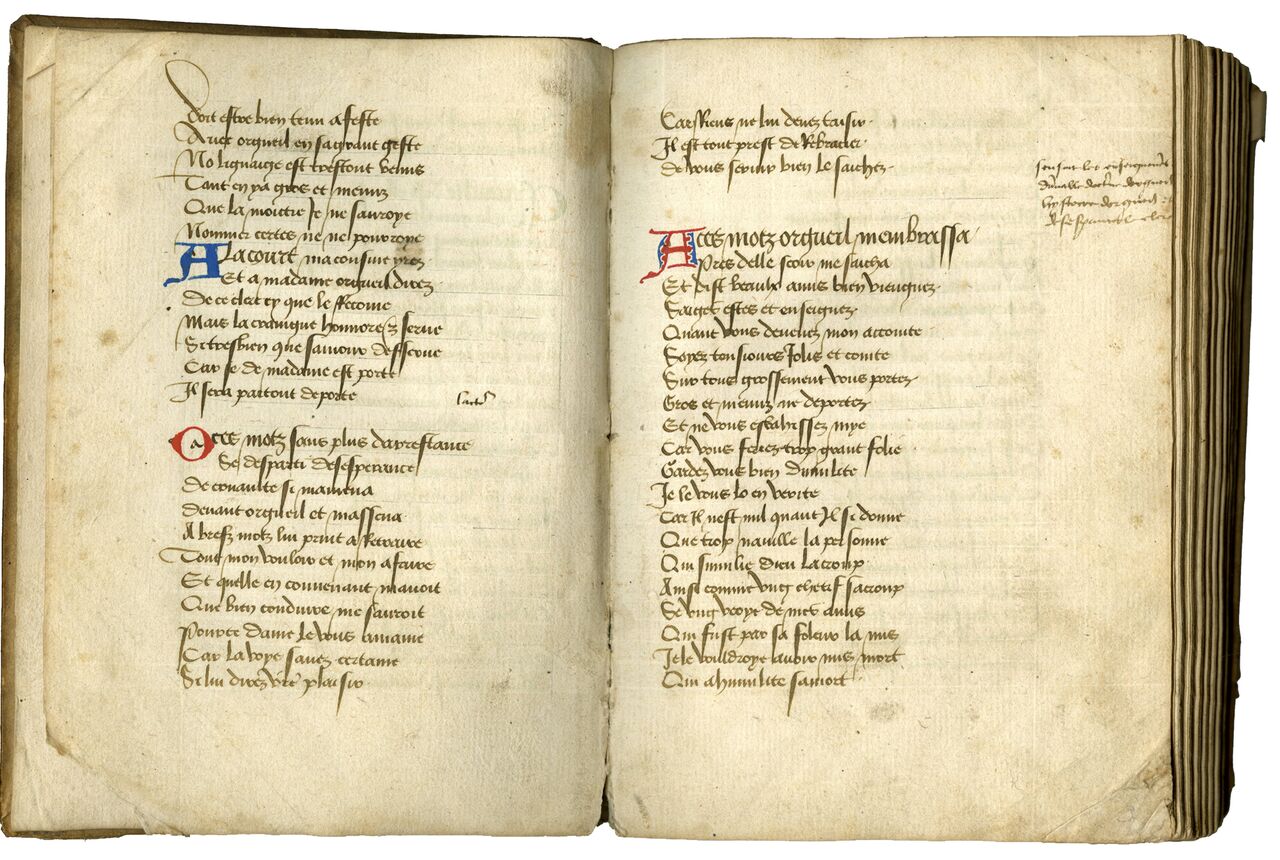 Doit estre bien tenu a feste
Avec orgueil en sa grant geste
No lignaige est trestout venus
Tant en ya gros et menuz
Que la moictie Je ne sauroye
Nommer certes ne ne pouroye
A la court ma consuivrez
Et a madame orgueil direz
De ce clerc cy que le Recoive
Mais la cronique honnorez serve
Si tresbien que samour desserve
Car se de madame est porte
Il sera partout deporte
lacteur
A ces motz sans plus darrestance
Se desparti desesperance
De couaulte si mamena
Devant orgueil et massena
A brefz motz lui print a Retraire
Tout mon vouloir et mon afaire
Et quelle en convenant mavoit
Que bien conduire me sauroit
Pource dame le vous amaine
Car la voye savez certaine
Si lui direz vre plaisir
Car Riens ne lui devez taisir
Il est tout prest de Rebracier
De vous servir bien le saichez
Sensuit les enseignemens
dorgueil
A ces motz orgueil membrassa
Pres delle seoir me laissa
Et dist beaulx amis bien viengnez
Saiges estes et enseignez
Quant vous devenez mon accointe
Soyez tousiours Jolis et cointe
Sur tous grossement vous portez
Gros et menuz ne deportez
Et ne vous esbahissez mye
Car vous feriez trop grant folie
Gardez vous bien dumilite
Je le vous lo en verite
Car Il nest nul quant Il si donne
Que trop naville la personne
Qui similie dieu lacroup
Ainsi comme ung chetif sacroup
Se ung voye de mes amis
Qui fust par sa foleur la mis
Je le vouldroye avoir mis mort
Qui a humilite samort